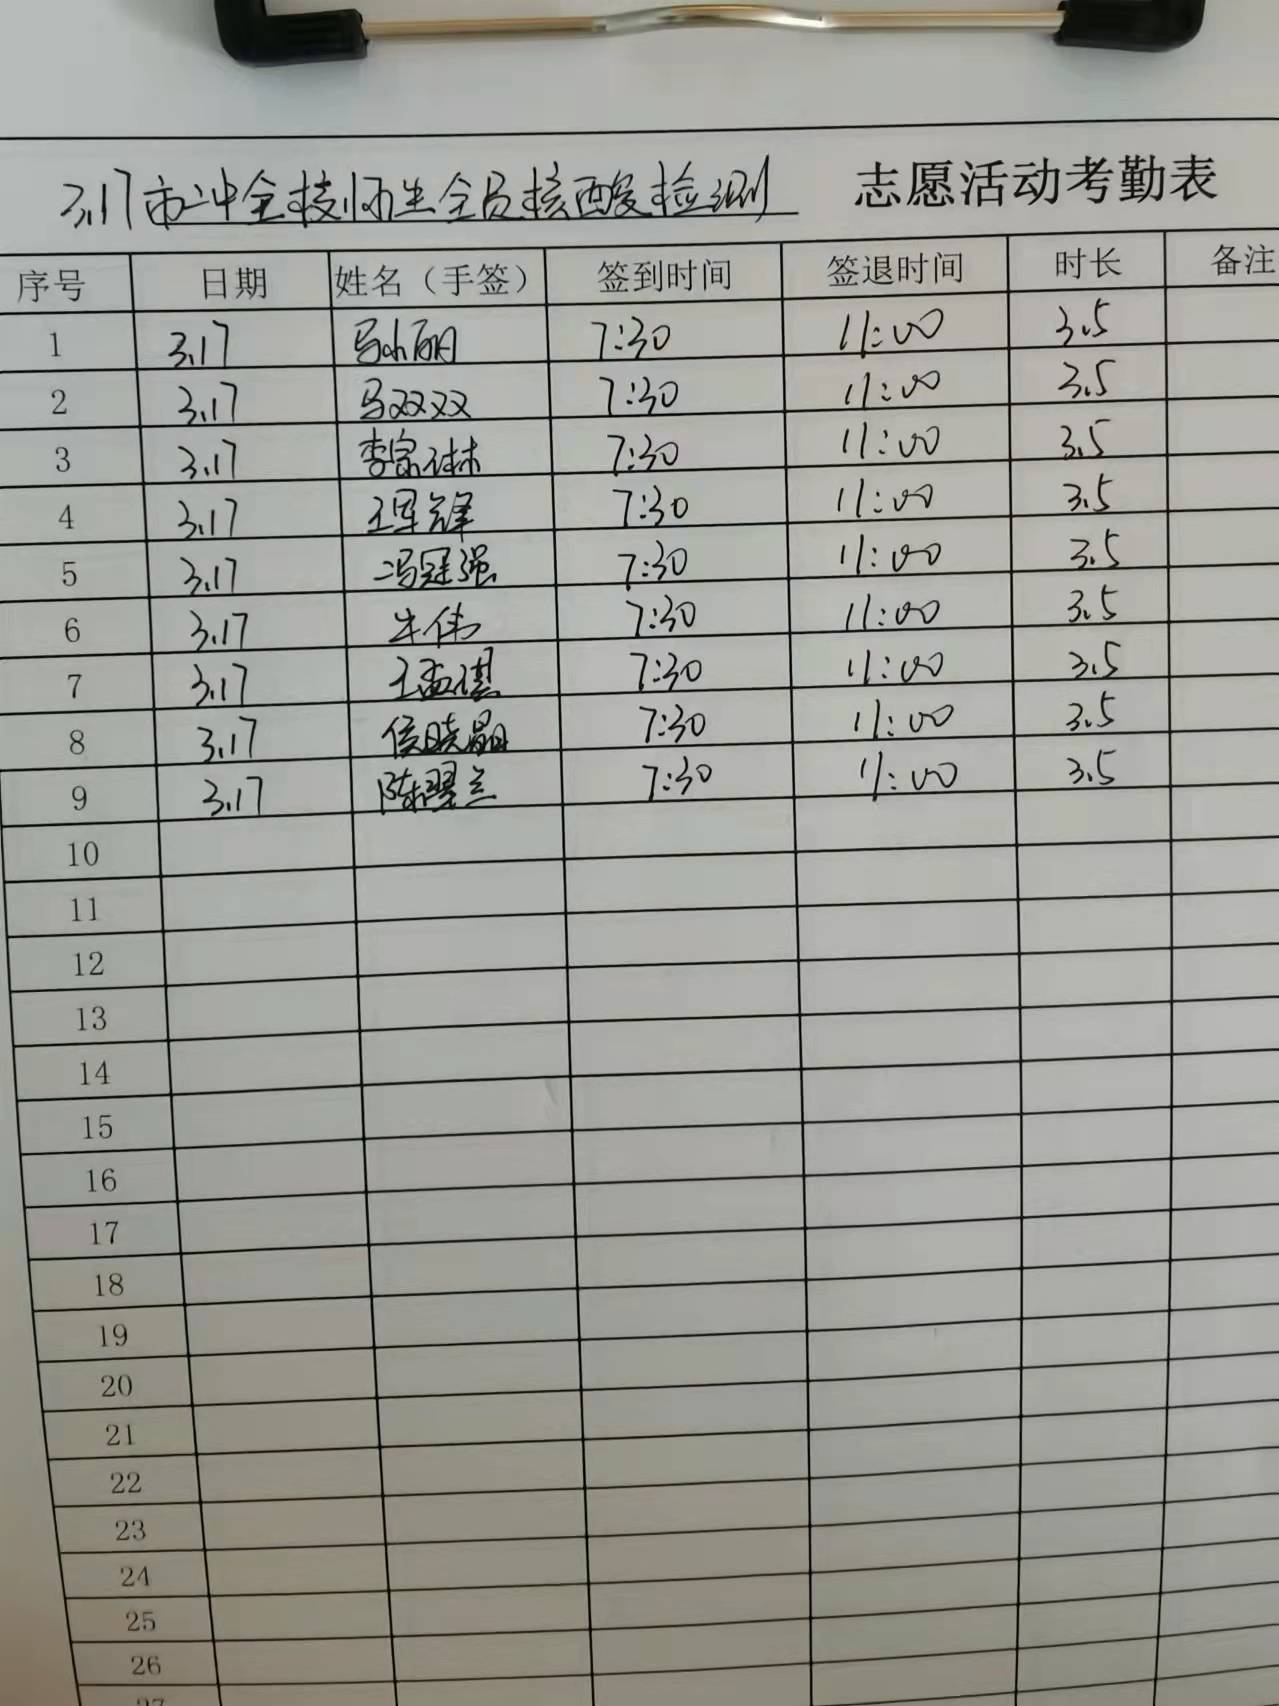 3.17市冲全校师生全员核酸检测 志愿活动考勤表
序号 日期 姓名（手签） 签到时间 签退时间 时长 备注
1 3.17 马小丽 7:30 11:00 3.5
2 3.17 马双双 7:30 11:00 3.5
3 3.17 李宗琳 7:30 11:00 3.5
4 3.17 王军锋 7:30 11:00 3.5
5 3.17 冯冠强 7:30 11:00 3.5
6 3.17 牛伟 7:30 11:00 3.5
7 3.17 7:30 11:00 3.5
8 3.17 侯晓晶 7:30 11:00 3.5
9 3.17 陈翠兰 7:30 11:00 3.5
10
11
12
13
14
15
16
17
18
19
20
21
22
23
24
25
26
27